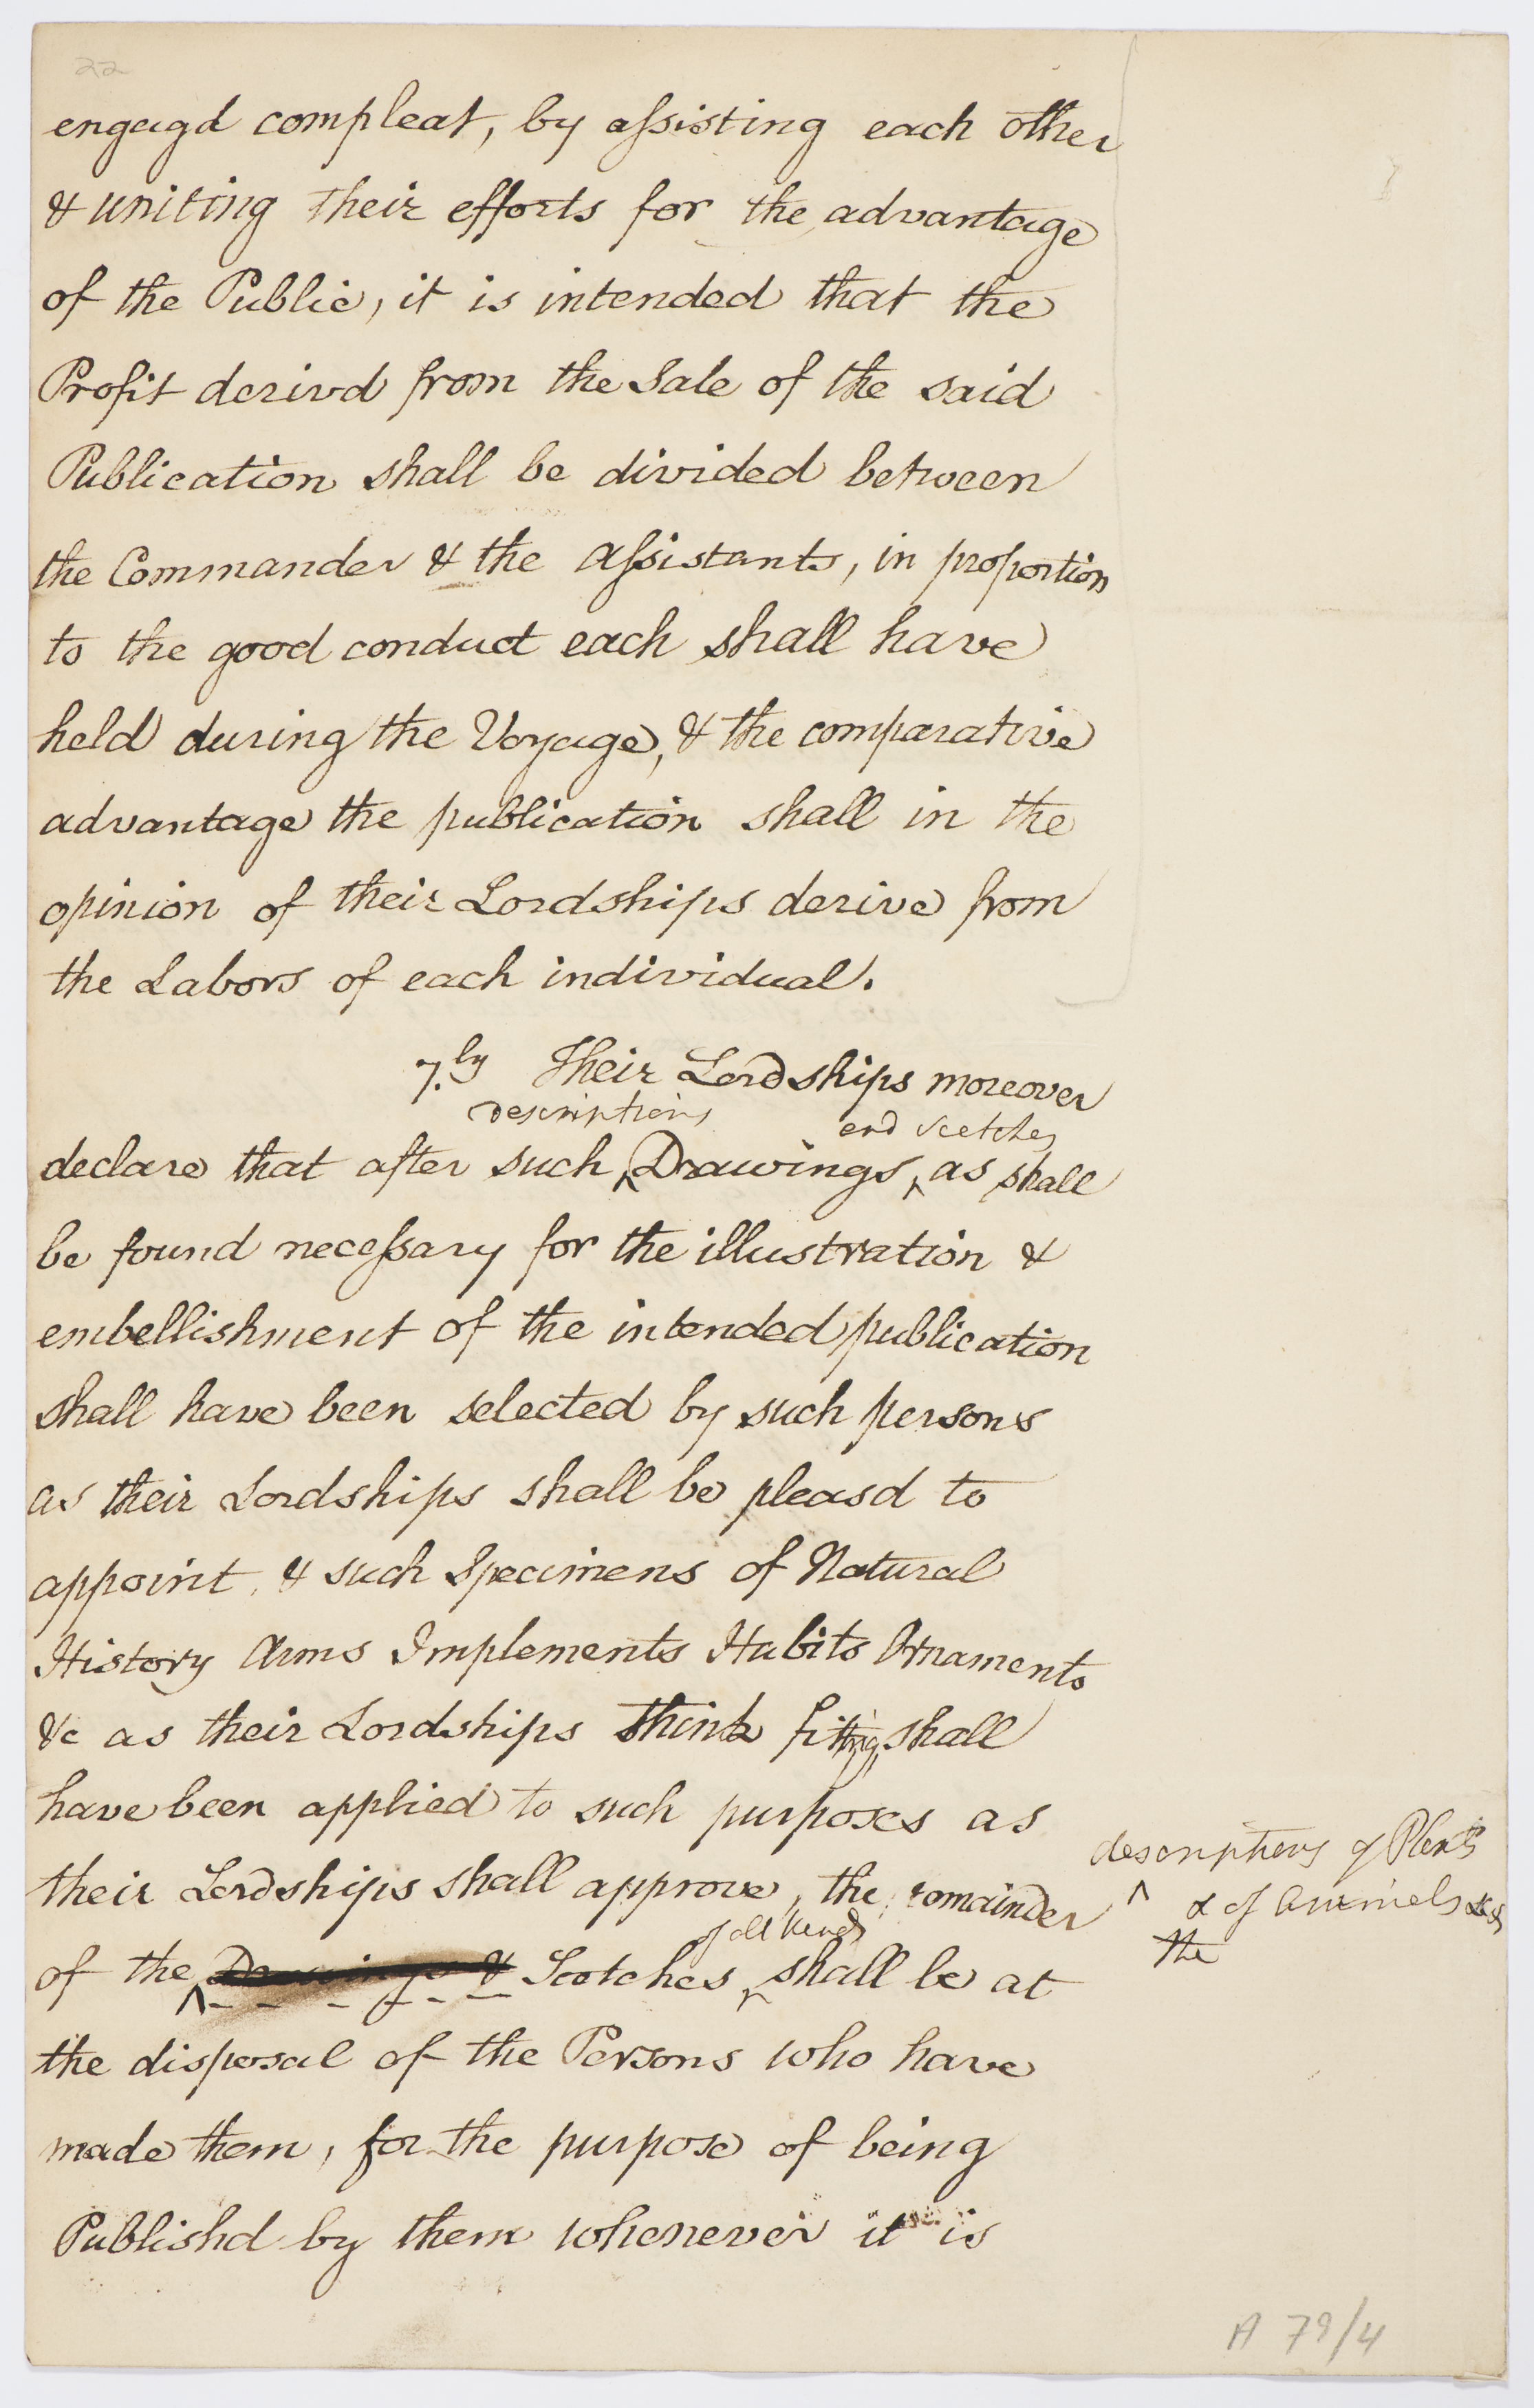 22
engagd compleat, by assisting each other
& uniting their efforts for the advantage
of the Public, it is intended that the
Profit derivd from the Sale of the said
Publication shall be divided between
the Commander & the Assistants, in proportion
to the good conduct each shall have
held during the Voyage, & the comparative
advantage the publication shall in the
opinion of their Lordships derive from
the Labors of each individual.
7.ly Their Lordships moreover
descriptions and Scetches
declare that after such ^ Drawings, ^ as shall
be found necessary for the illustration &
embellishment of the intended publication
shall have been selected by such persons
as their Lordships shall be pleasd to
appoint, & such Specimens of Natural
History Arms Implements Habits Ornaments
&c as their Lordships think fitting shall
have been applied to such purposes as
their Lordships shall approve, the remainder
descriptions of Plants
^ & of Animals &
the
of all kinds
of the ^ Drawings & Scetches ^ shall be at
the disposal of the Persons who have
made them, for the purpose of being
Publishd by them whenever it is
A 79/4